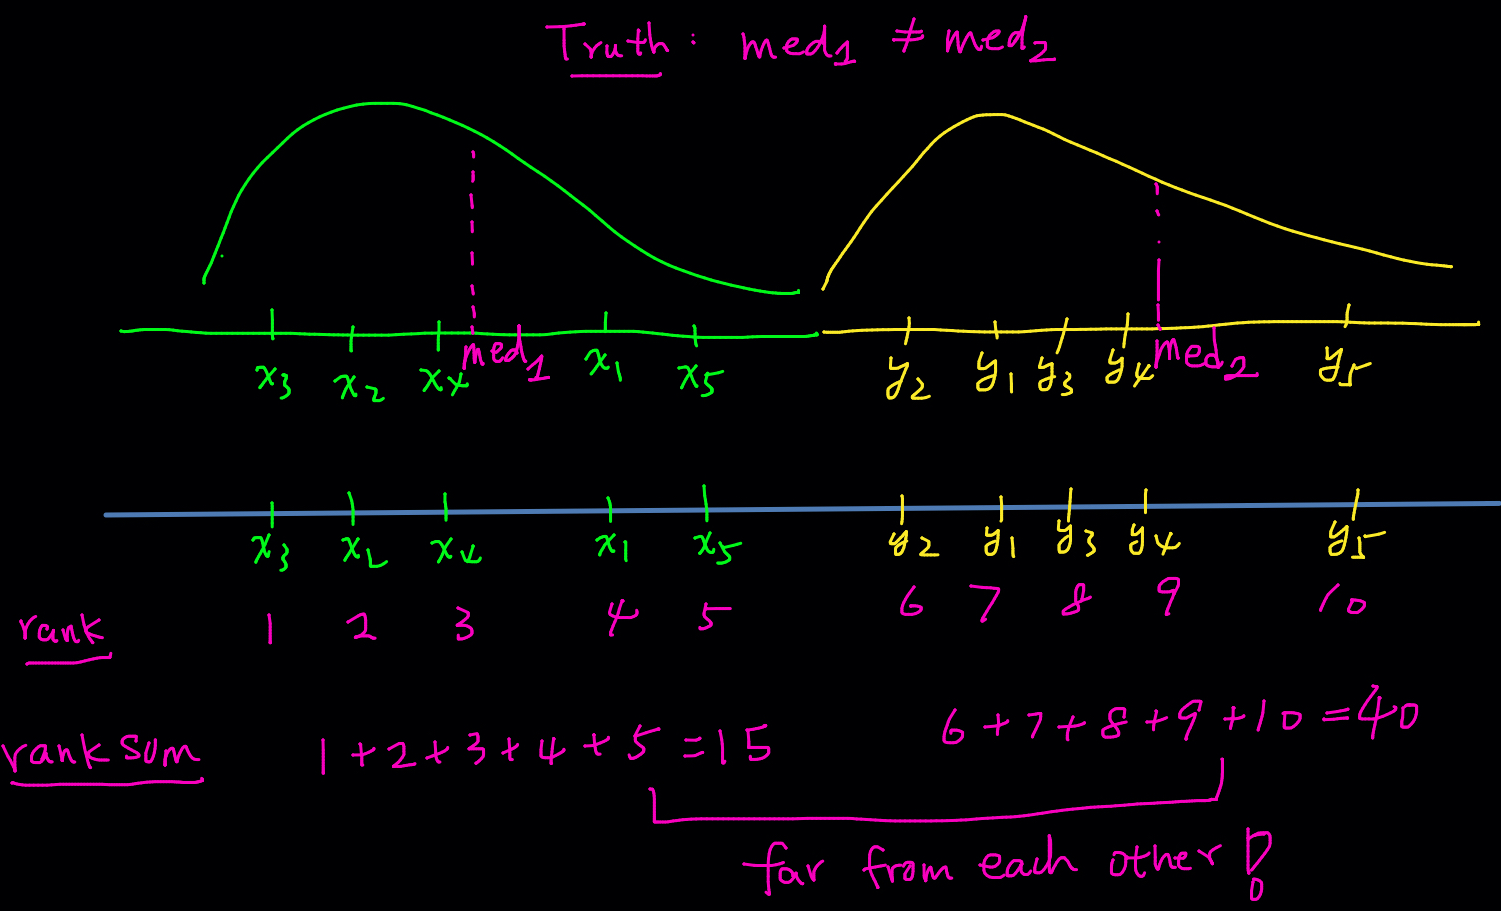 Truth: med₁ ≠ med₂
x₃ x₂ x₄ med₁ x₁ x₅ y₂ y₁ y₃ y₄ med₂ y₅
x₃ x₂ x₄ x₁ x₅ y₂ y₁ y₃ y₄ y₅
rank 1 2 3 4 5 6 7 8 9 10
rank sum 1+2+3+4+5=15 6+7+8+9+10=40
far from each other!